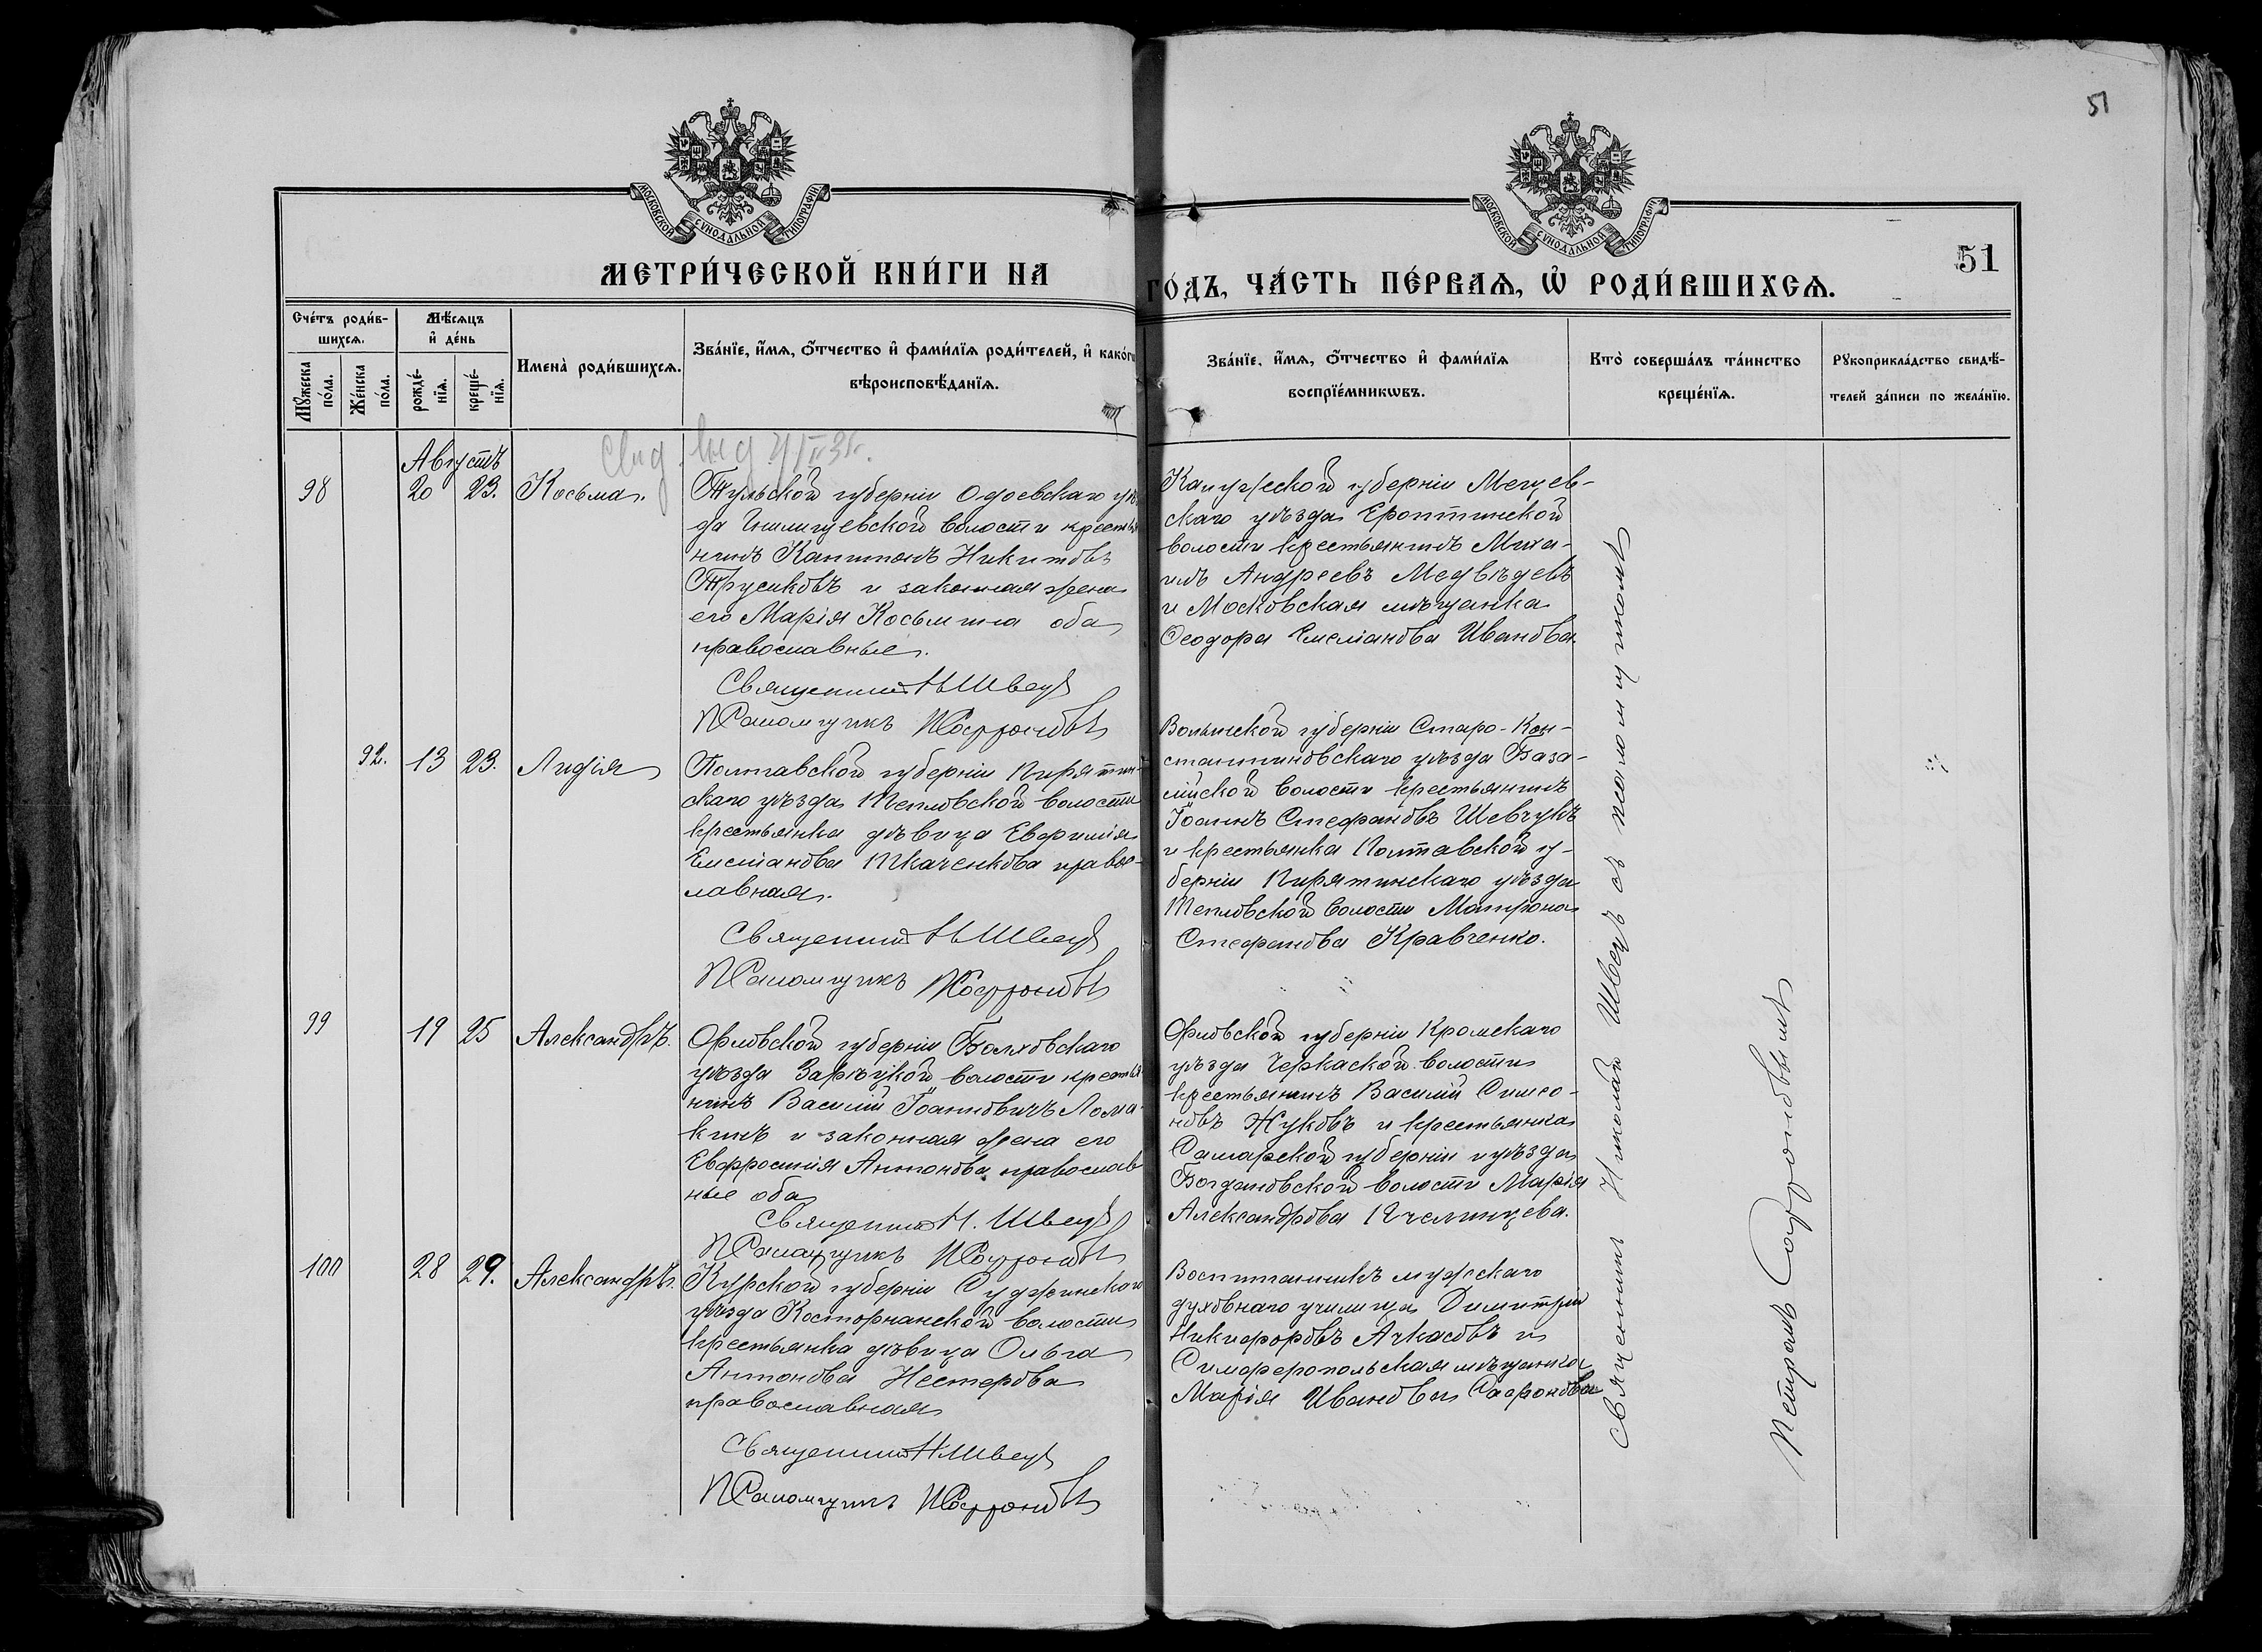 51
МОСКОВСКОЙ СѴНОДАЛЬНОЙ ТИПОГРАФІИ
МОСКОВСКОЙ СѴНОДАЛЬНОЙ ТИПОГРАФІИ
51
МЕТРИ́ЧЕСКОЙ КНИ́ГИ НА
ГО́ДЪ, ЧА́СТЬ ПЕ́РВАѦ, Ѡ҆ РОДИ́ВШИХСѦ.
Сче́тъ роди́в-
шихсѧ.
Мѣ́сѧцъ
и҆ де́нь
Мꙋ́жеска по́ла.
Же́нска по́ла.
рожде́-
нїѧ.
креще́-
нїѧ.
Имена̀ роди́вшихсѧ.
Зва́нїе, и҆́мѧ, ѻ҆́тчество и҆ фами́лїѧ роди́телей, и҆ како́гѡ
вѣроисповѣ́данїѧ.
Зва́нїе, и҆́мѧ, ѻ҆́тчество и҆ фами́лїѧ
воспрїе́мникѡвъ.
Кто̀ соверша́лъ та́инство
креще́нїѧ.
Рꙋкоприкла́дство свидѣ́-
телей за́писи по жела́нїю.
Августъ
98 20 23. Косьма.
Тульской губерніи Одоевскаго уѣз
да волости крестья
нинъ Капитонъ Никитовъ
Трусиковъ и законная жена
его Марія Косьмина оба
православные.
Священникъ Н Швецъ
Псаломщикъ П Софроновъ
Калужской губерніи Мещев-
скаго уѣзда Ероптинской
волости крестьянинъ Миха-
илъ Андреевъ Медвѣдевъ
и Московская мѣщанка
Ѳеодора Емеліанова Иванова.
92. 13 23. Лидія
Полтавской губерніи Пирятин-
скаго уѣзда Тепловской волости
крестьянка дѣвица Евфимія
Емеліанова Ткаченкова правос-
лавная.
Священникъ Н Швецъ
Псаломщикъ П Софроновъ
Волынской губерніи Старо-Кон-
стантиновскаго уѣзда База-
лійской волости крестьянинъ
Іоаннъ Стефановъ Шевчукъ
и крестьянка Полтавской гу-
берніи Пирятинскаго уѣзда
Тепловской волости Матрона
Стефанова Кравченко.
99 19 25 Александръ.
Орловской губерніи Болховскаго
уѣзда Зарѣцкой волости крестья
нинъ Василій Іоанновичъ Лома-
кинъ и законная жена его
Евфросинія Антонова православ
ные оба
Священникъ Н. Швецъ
Псаломщикъ П Софроновъ
Орловской губерніи Кромскаго
уѣзда Черкаской волости
крестьянинъ Василій Симео-
новъ Жуковъ и крестьянка
Самарской губерніи и уѣзда
Богдановской волости Марія
Александрова Пчелинцева.
100 28 29. Александръ.
Курской губерніи Суджинскаго
уѣзда Косторнанской волости
крестьянка дѣвица Ольга
Антонова Нестерова
православная
Священникъ Н Швецъ
Псаломщикъ П Софроновъ
Воспитанникъ мужскаго
духовнаго училища Димитрій
Никифоровъ Ачкасовъ и
Симферопольская мѣщанка
Марія Иванова Сафронова
Священникъ Николай Швецъ съ псаломщикомъ
Петромъ Софроновымъ